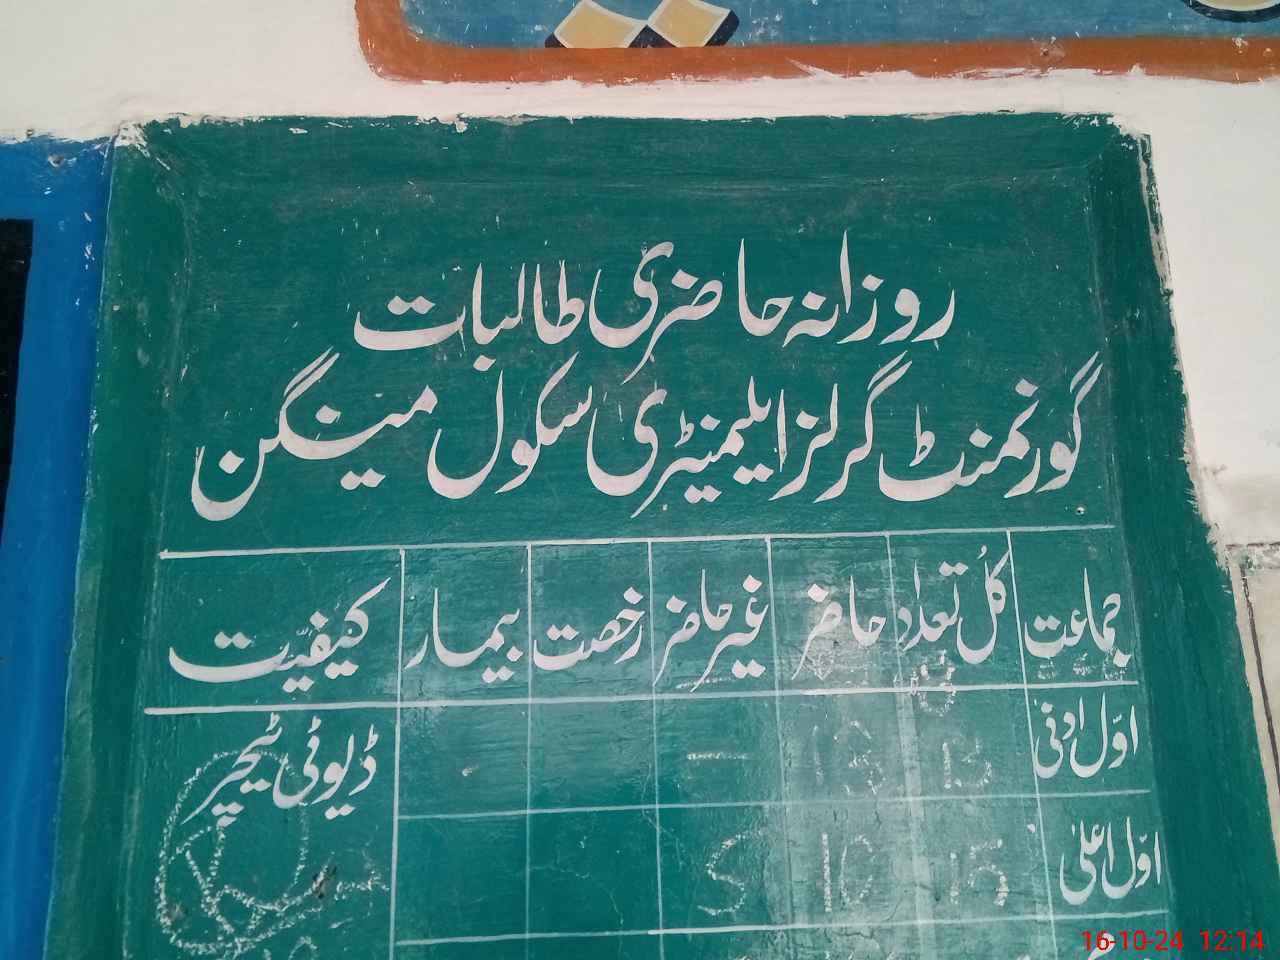 روزانہ حاضری طالبات
گورنمنٹ گرلز ایلیمنٹری سکول مینگن
جماعت کل تعداد حاضر غیر حاضر رخصت بیمار کیفیّت
اوّل ادنیٰ 13 13 – ڈیوٹی ٹیچر
اوّل اعلیٰ 15 10 5
16-10-24 12:14